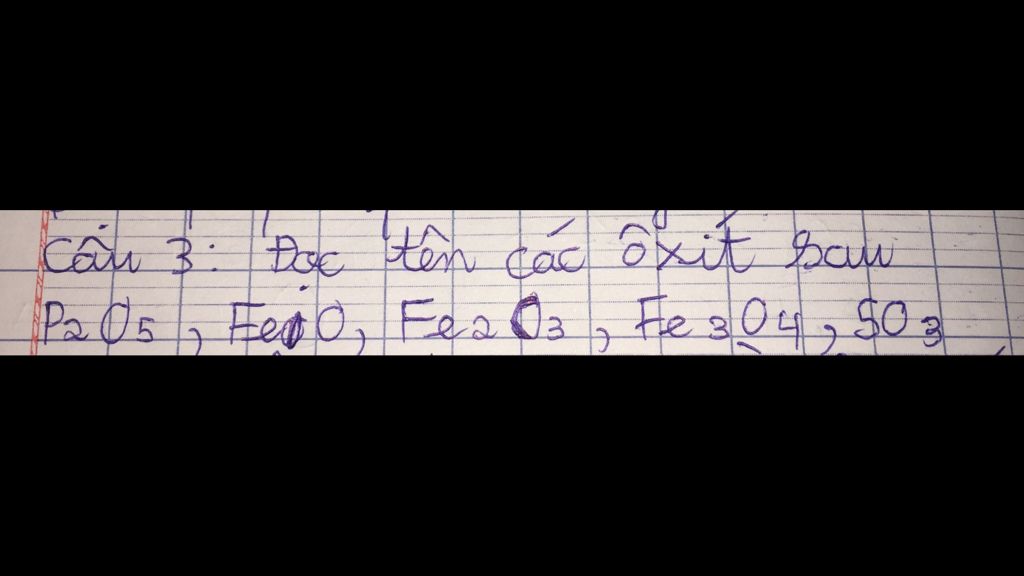 Câu 3: Đọc tên các ôxít sau
P2O5, FeO, Fe2O3, Fe3O4, SO3